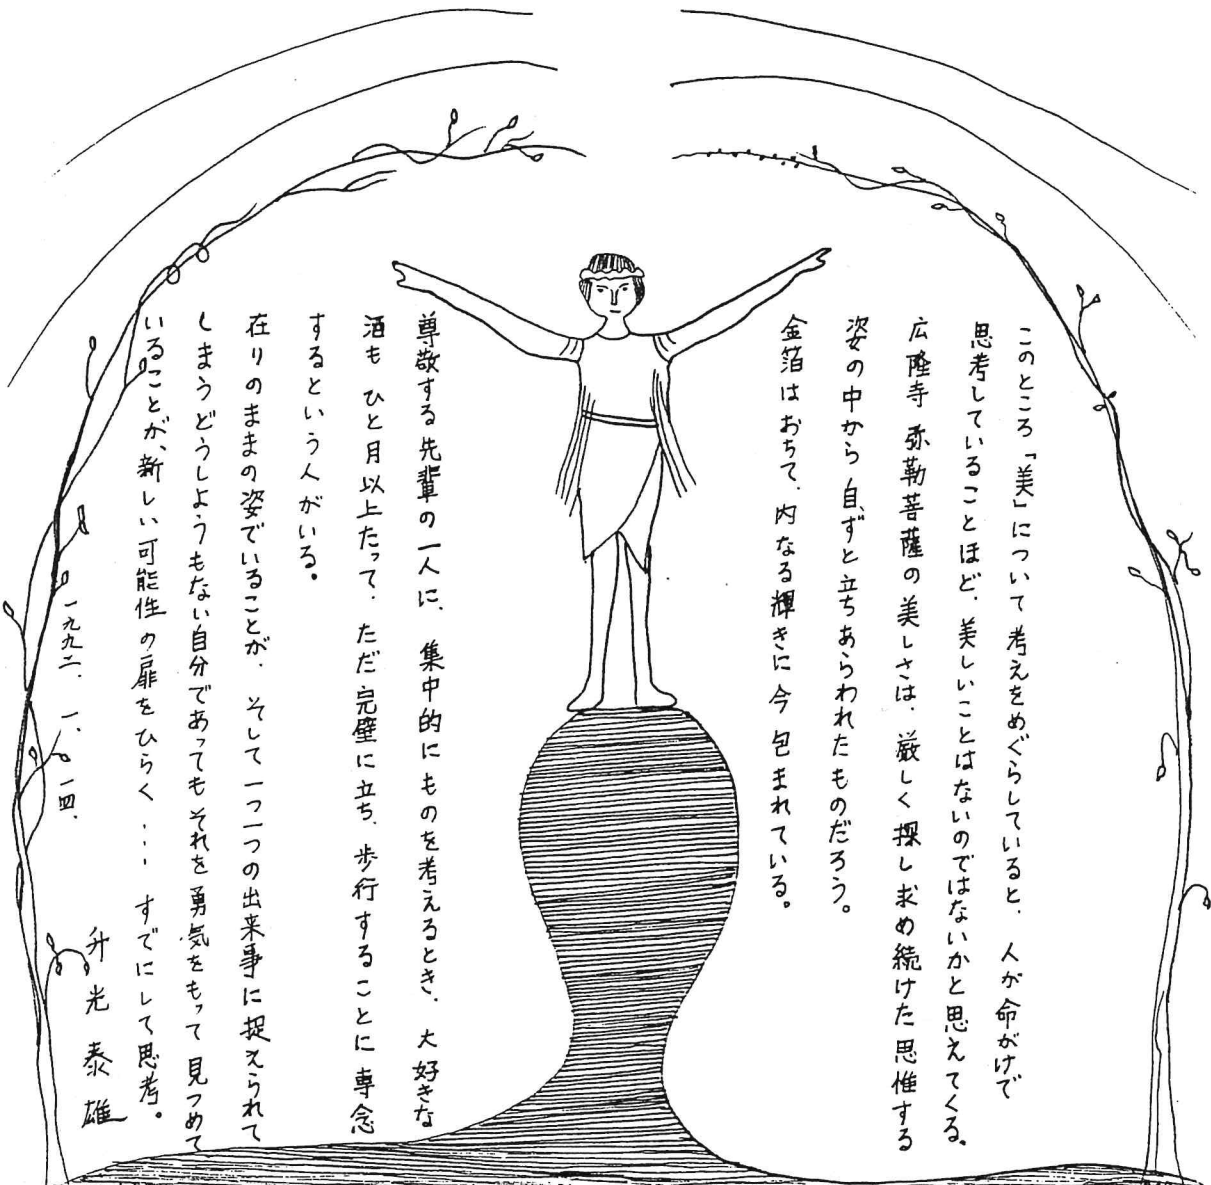 このところ「美」について考えをめぐらしていると、人が命がけで
思考していることほど、美しいことはないのではないかと思えてくる。
広隆寺 弥勒菩薩の美しさは、厳しく探し求め続けた思惟する
姿の中から自ずと立ちあらわれたものだろう。
金箔はおちて、内なる輝きに今包まれている。
尊敬する先輩の一人に、集中的にものを考えるとき、大好きな
酒もひと月以上たって、ただ完璧に立ち、歩行することに専念
するという人がいる。
在りのままの姿でいることが、そして一つ一つの出来事に捉えられて
しまうどうしようもない自分であってもそれを勇気をもって見つめて
いることが、新しい可能性の扉をひらく・・・すでにして思考。
一九九二、一、一四、
升光泰雄